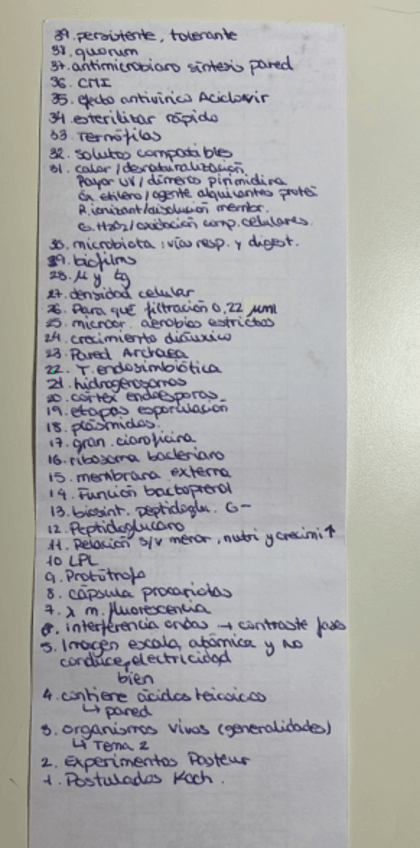 39. persistente, tolerante
38. quorum
37. antimicrobiano síntesis pared
36. CMI
35. efecto antivírico Aciclovir
34. esterilizar rápido
33. Termófilos
32. solutos compatibles
31. calor/desnaturalización
Rayos UV/dímeros pirimidina
Óx etileno/agente alquilantes prote
R. ionizant/disolución membr.
G. H2O2/oxidación comp. celulares
30. microbiota : vías resp. y digest.
29. biofilms
28. μ y tg
27. densidad celular
26. Para qué filtración 0,22 μm
25. microor. aerobios estrictos
24. crecimiento diáuxico
23. Pared Archaea
22. T. endosimbiótica
21. hidrogenosomas
20. córtex endoesporas
19. etapas esporulación
18. plásmidos
17. gran. cianoficina
16. ribosoma bacteriano
15. membrana externa
14. Función bactoprenol
13. biosint. peptidoglu. G-
12. Peptidoglucano
11. Relación S/V menor, nutri y crecimi ↑
10 LPL
9. Protótrofo
8. cápsula procariotas
7. λ m. fluorescencia
6. interferencia ondas → contraste fases
5. Imagen escala atómica y no
conduce electricidad
bien
4. contiene ácidos teicoicos
↳ pared
3. organismos vivos (generalidades)
↳ Tema 2
2. Experimentos Pasteur
1. Postulados Koch.